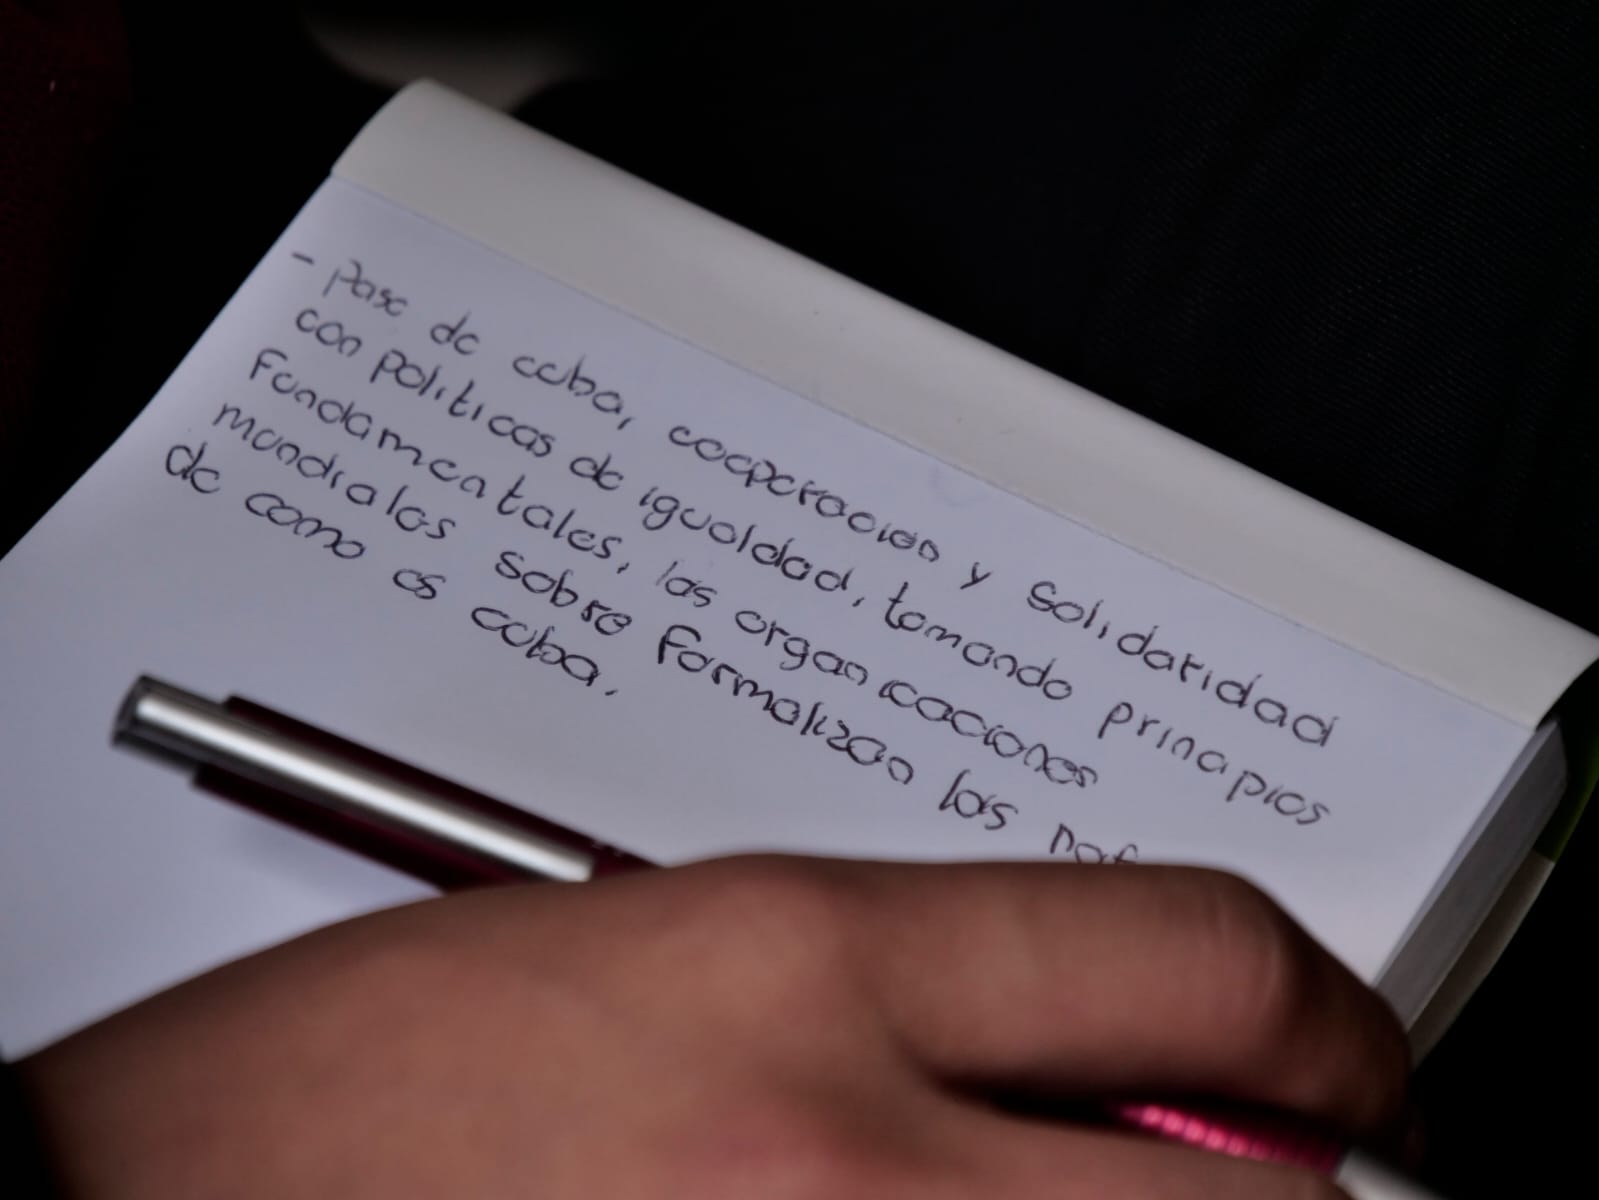 - Pase de cuba, cooperacion y solidatidad
con politicas de igualdad, tomando principios
Fundamentales, las organicaciones
mundiales sobre formalizan las
de como es cuba.